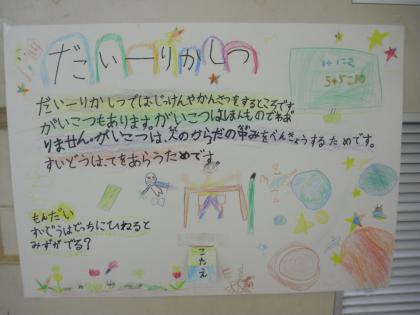 だいーりかしつ
1+1=2
5+5=10
だいーりかしつではじっけんやかんさつをするところです。
がいこつもあります。がいこつはほんものでわあ
りません。がいこつは、人のからだの
みをべんきょうするためです。
すいどうは、てをあらうためです。
もんだい
すいどうはどっちにひねると
みずがでる?
こたえ